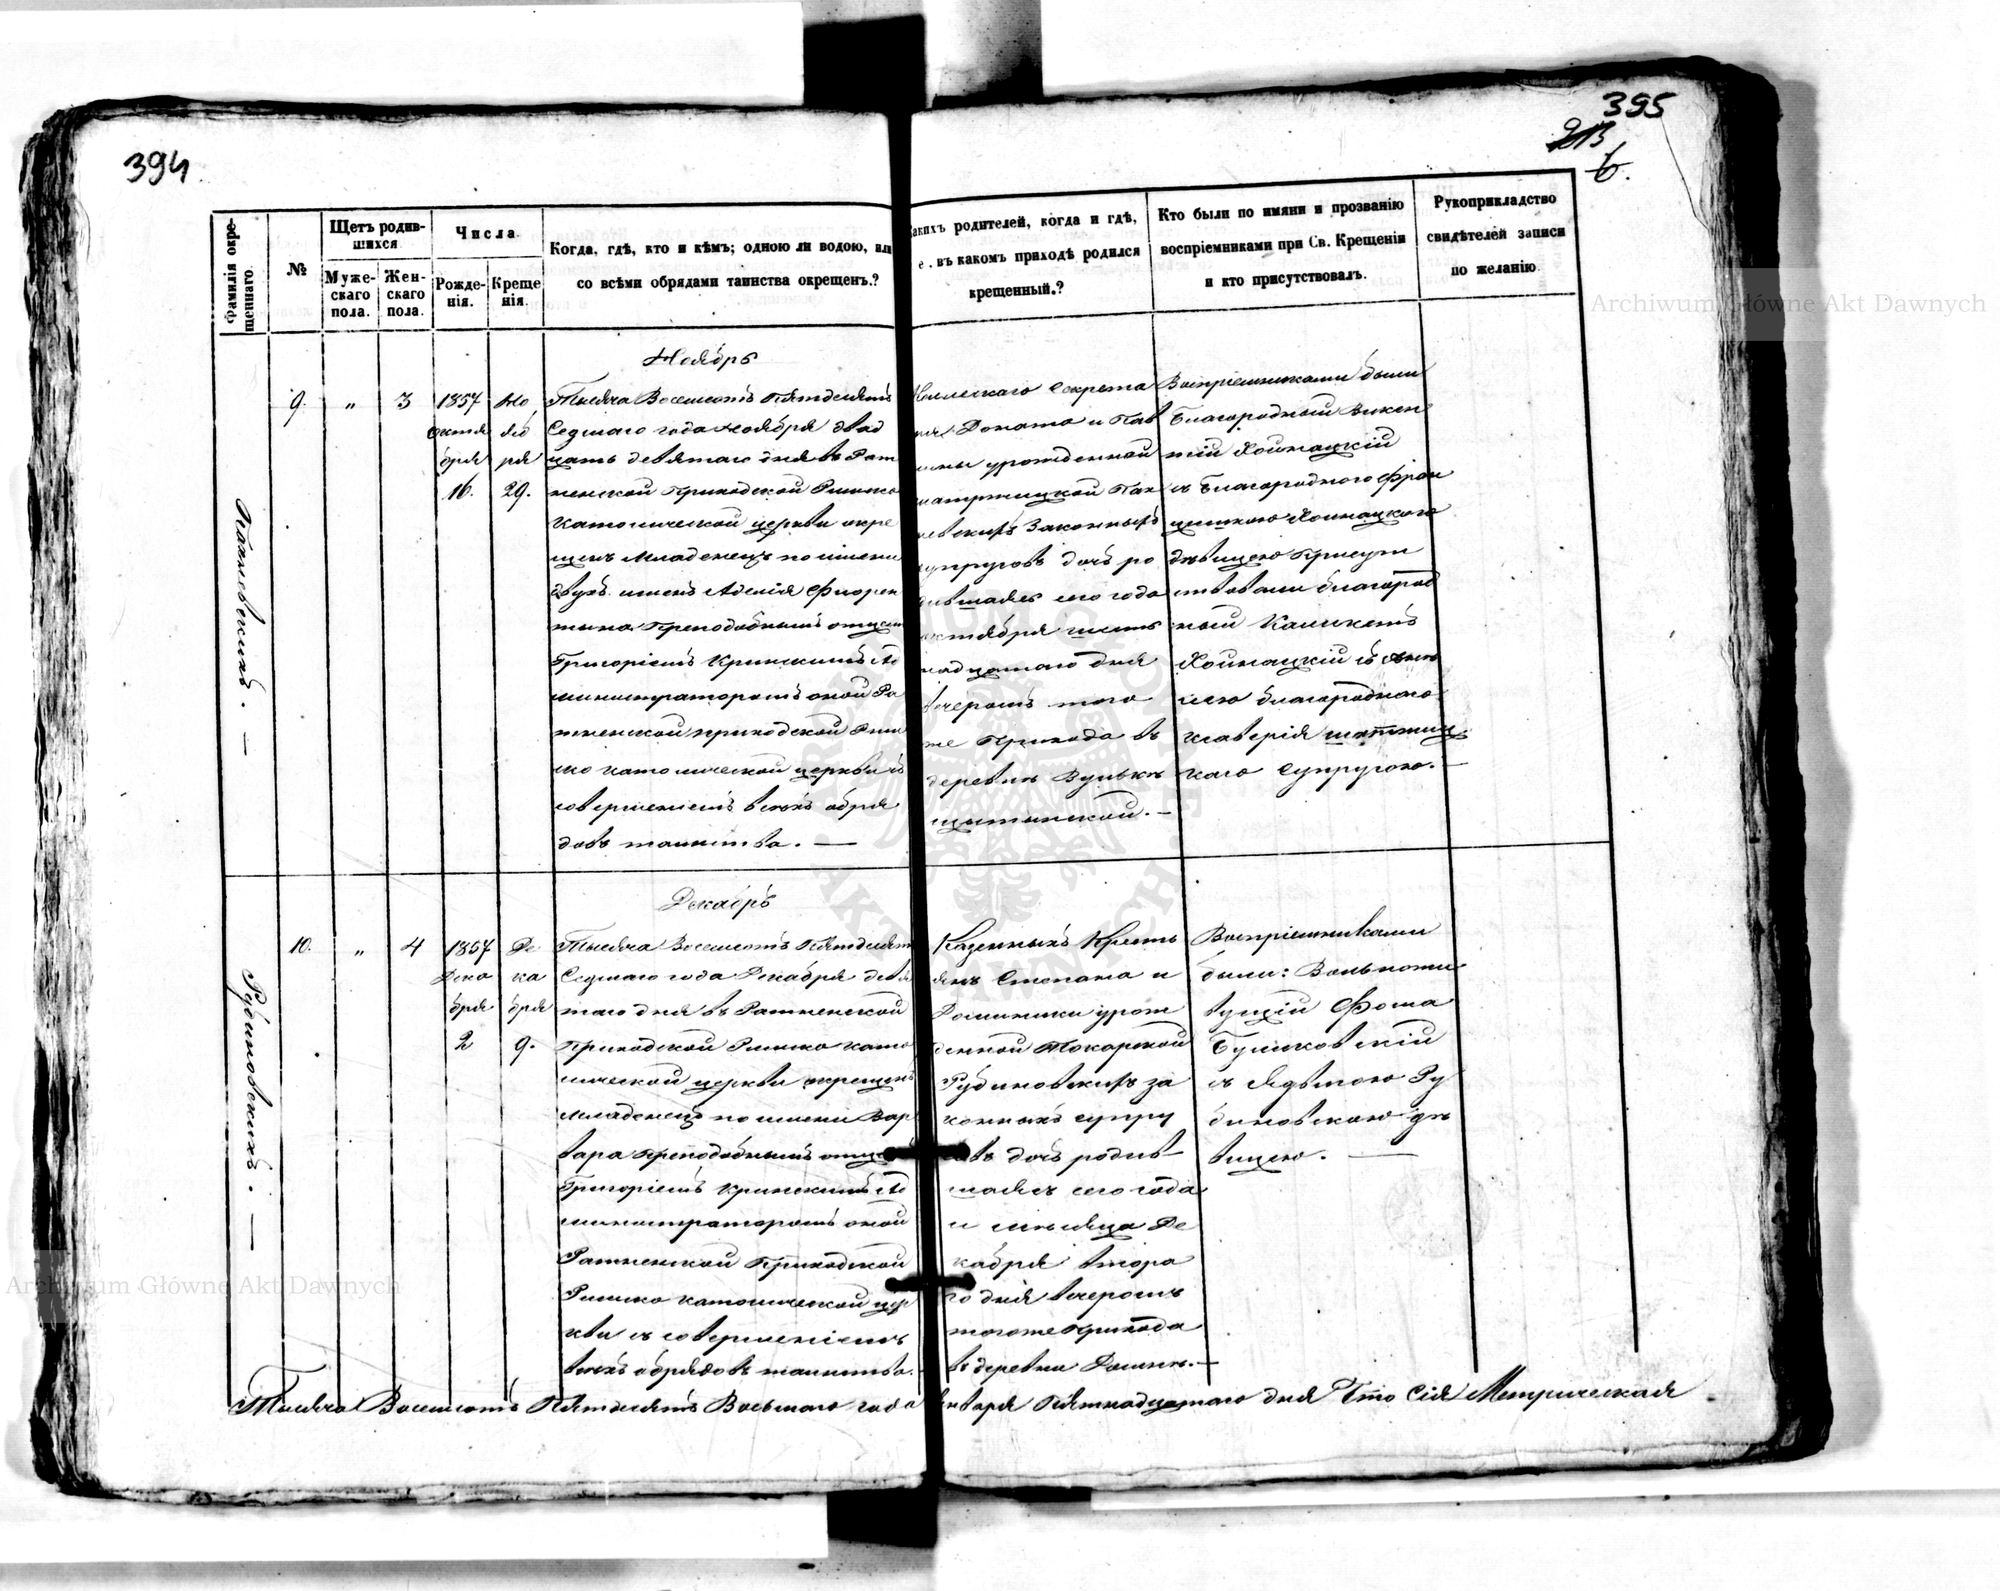 394
395
213
6.
Фамилія окрещеннаго.
№
Щетъ родившихся
Мужескаго пола.
Женскаго пола.
Числа
Рожденія.
Крещенія.
Когда, гдѣ, кто и кѣмъ; одною ли водою, или
со всѣми обрядами таинства окрещенъ.?
какихъ родителей, когда и гдѣ,
е . въ какомъ приходѣ родился
крещенный.?
Кто были по имяни и прозванію
воспріемниками при Св. Крещеніи
и кто присутствовалъ.
Рукоприкладство
свидѣтелей записи
по желанію
Ноябрь
9. „ 3 1857 Октября 16. Ноября 29.
Тысяча Восемьсотъ Пятдесятъ
Седьмаго года Ноября двад
цать девятаго дня въ Рат
ненской Приходской Римско
Католической церкви окре
щенъ Младенецъ по имени
двухъ именъ Флорен
тына Преподобнымъ отцемъ
Григоріемъ Кринскимъ Ад
министраторомъ оной Ра
тненской приходской Рим
ско католической церкви съ
совершеніемъ всѣхъ обря
довъ таинства. —
Секрета
ря Доната и Пав
лины урожденной
Пан
евскихъ Законныхъ
супруговъ дочь ро
дившаяся сего года
октября шест
надцатаго дня
вечеромъ того
же Прихода въ
деревнѣ Вулькѣ
щытынской. —
Воспріемниками были
Благородный Викен
тій Хойнацкій
съ Благороднаго Фран
цишкою Хойнацкаго
дѣвицею Присут
ствовали благород
ный
Хойнацкій съ
благороднаго
Ксаверія
каго Супругою. —
Панѣевскихъ. —
Декабрь
10. „ 4 1857 Декабря 2 Декабря 9.
Тысяча Восемьсотъ Пятдесятъ
Седьмаго года Декабря девя
таго дня въ Ратненской
Приходской Римско като
лической церкви окрещенъ
Младенецъ по имени Вар
вара Преподобнымъ отцемъ
Григоріемъ Кринскимъ Ад
министраторомъ оной
Ратненской Приходской
Римско католической цер
кви съ совершеніемъ
всѣхъ обрядовъ таинства.
Казенныхъ Кресть
янъ Степана и
Доминики урож
денной Токарской
Рубиновскихъ за
конныхъ супру
говъ дочь родив
шаясъ сего года
и мѣсяца Де
кабря втора
го дня вечеромъ
тогоже прихода
въ деревни
Воспріемниками
были: Вольножи
вущій Фома
Булковскій
съ Ядвигою Ру
биновскою дѣ
вицею. —
Рубиновскихъ. —
Тысяча Восемьсотъ Пятдесятъ Восьмаго года Января Пятнадцатаго дня Что Сія Метрическая
Archiwum Główne Akt Dawnych
Archiwum Główne Akt Dawnych